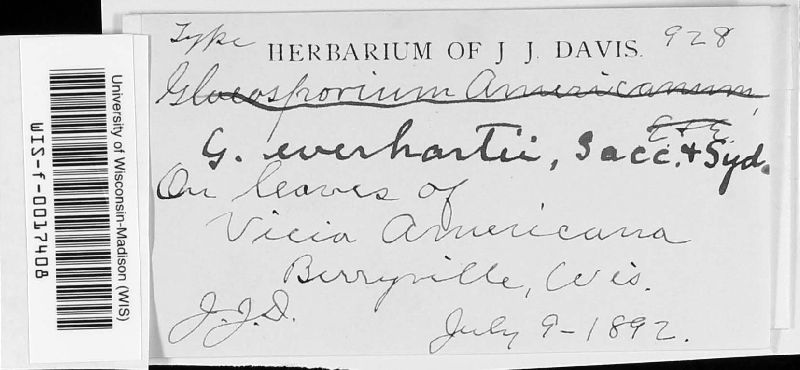 Type HERBARIUM OF J J. DAVIS. 928
Gloeosporium Americanum,
E. & E.
G. everhartii, Sacc. & Syd.
On leaves of
Vicia Americana
Berryville, Wis.
J.J.D. July 9-1892.
University of Wisconsin-Madison (WIS)
WIS-f-0017408